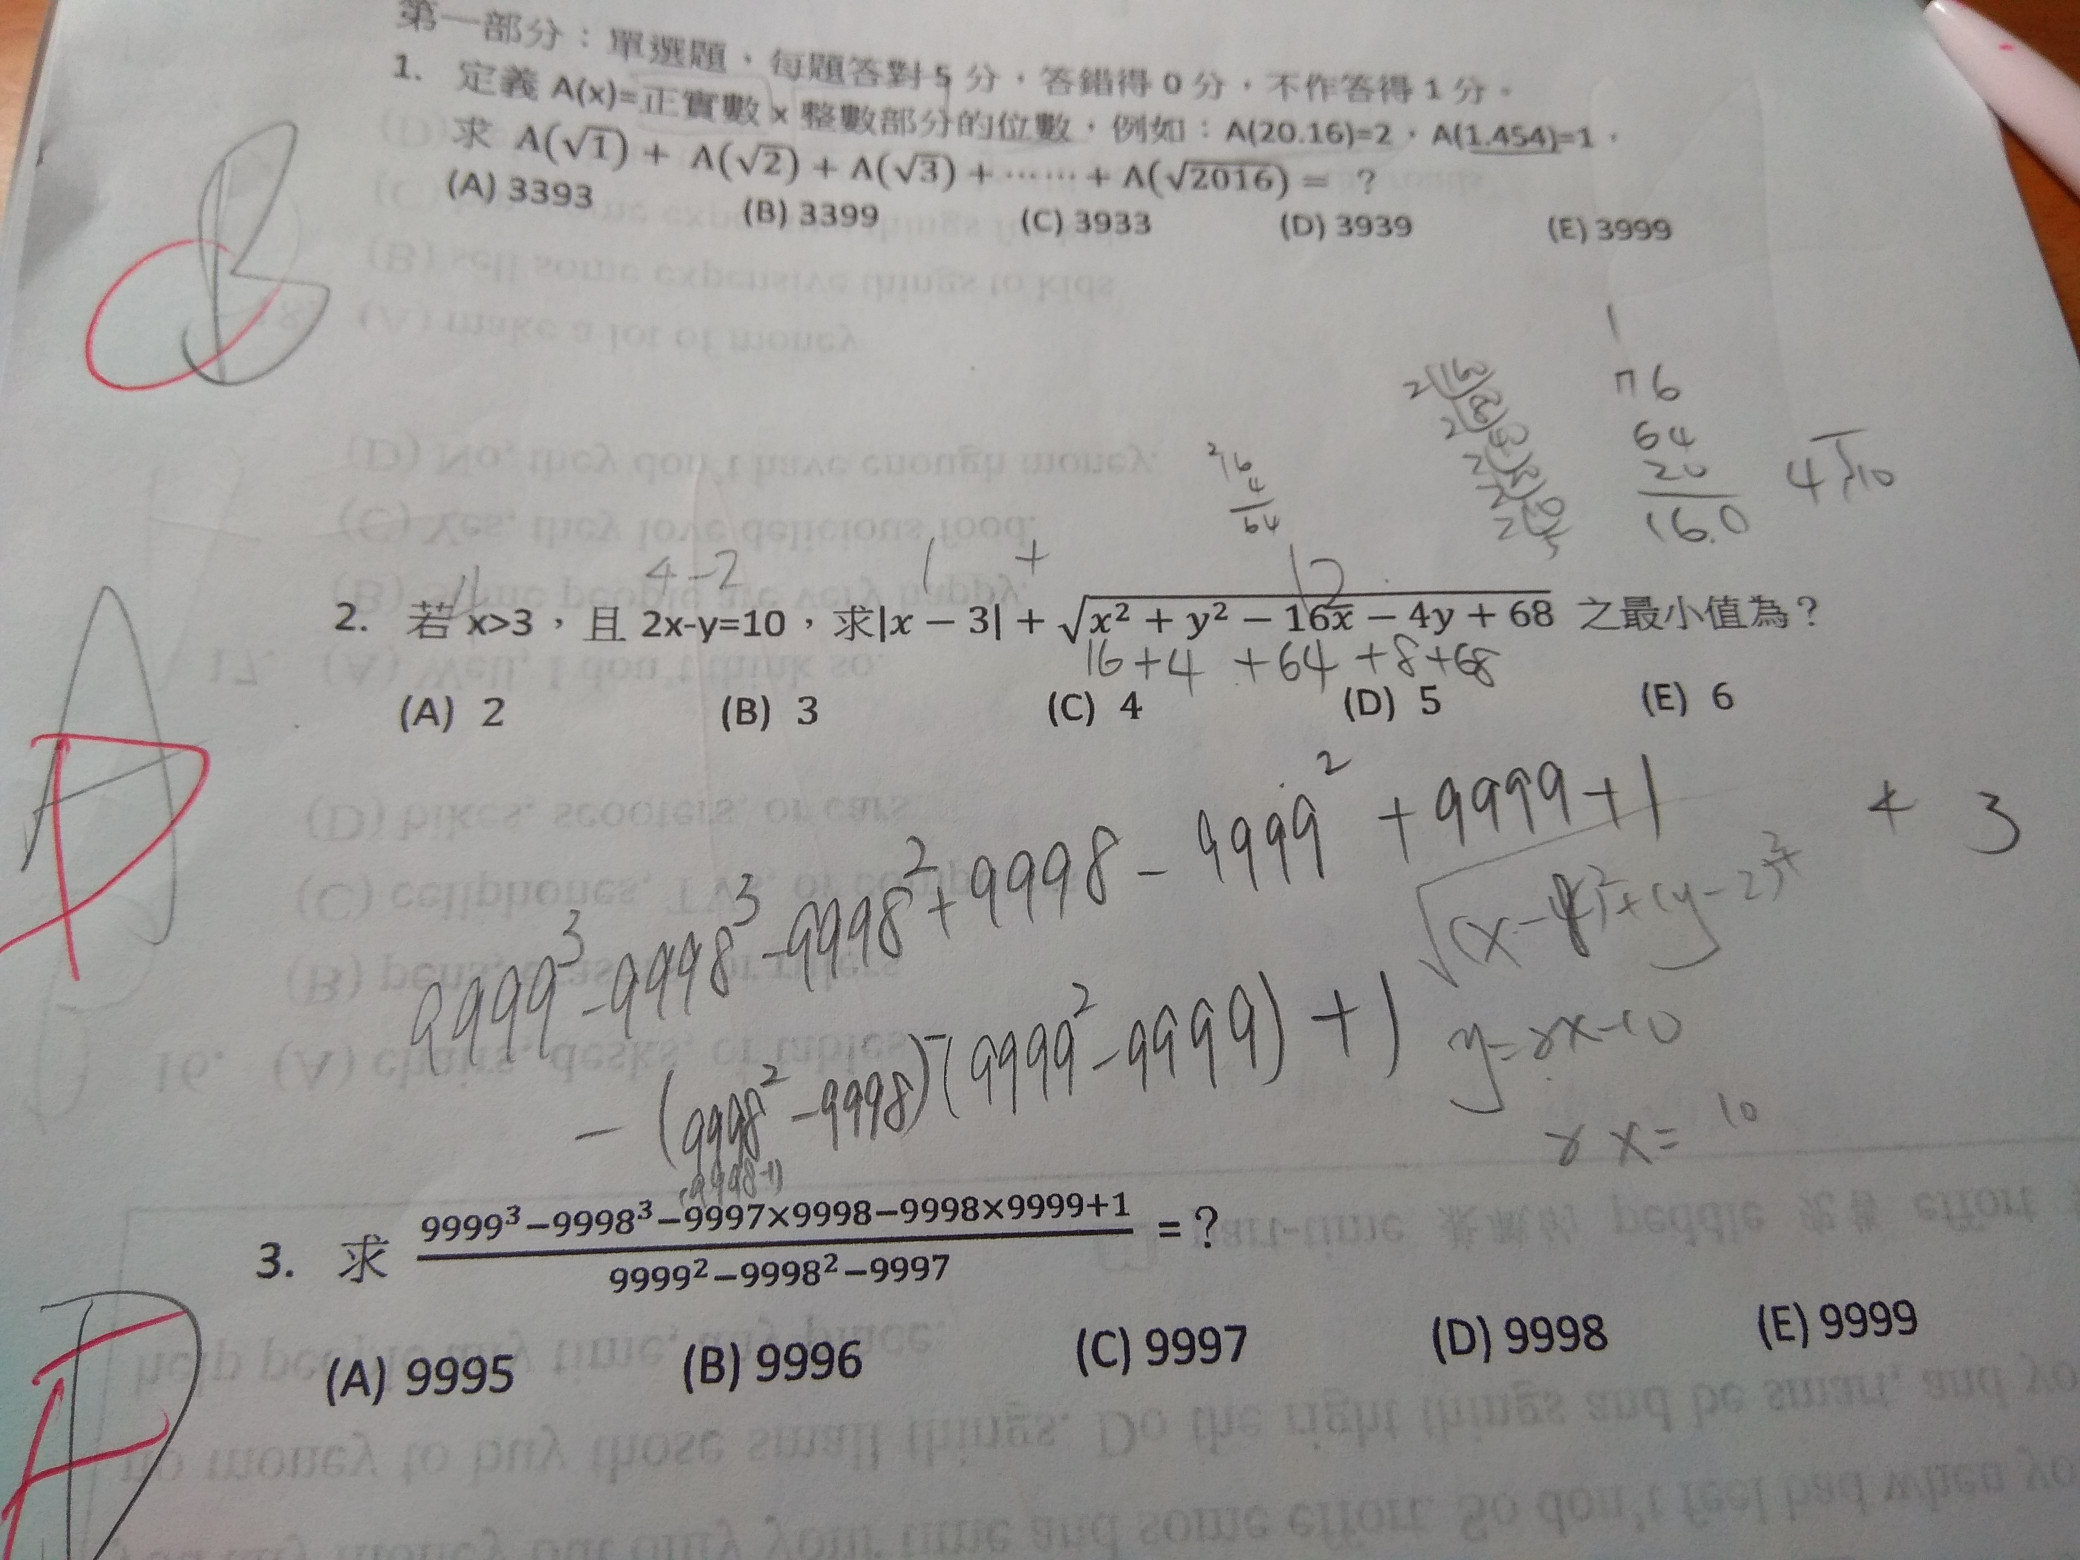 第一部分：單選題，每題答對 5 分，答錯得 0 分，不作答得 1 分。
1. 定義 A(x)=正實數 x 整數部分的位數，例如：A(20.16)=2，A(1.454)=1，
求 A(√1) + A(√2) + A(√3) + ⋯⋯ + A(√2016) = ?
(A) 3393 (B) 3399 (C) 3933 (D) 3939 (E) 3999
B
C
76
64
20
160
4√10
16
4
64
4-2
12
2. 若 x>3，且 2x-y=10，求|x − 3| + √x² + y² − 16x − 4y + 68 之最小值為？
16+4 +64 +8+68
(A) 2 (B) 3 (C) 4 (D) 5 (E) 6
A
D
9999³-9998³-9998²+9998-9999²+9999+1
+ 3
-(9998²-9998)-(9999²-9999)+1
y=2x-10
2x= 10
(9998-1)
3. 求 9999³−9998³−9997×9998−9998×9999+1 / 9999²−9998²−9997 =？
(A) 9995 (B) 9996 (C) 9997 (D) 9998 (E) 9999
D
E